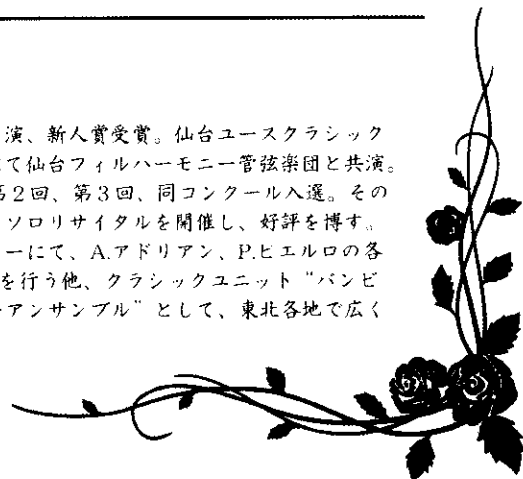 演、新人賞受賞。仙台ユースクラシック
て仙台フィルハーモニー管弦楽団と共演。
第2回、第3回、同コンクール入選。その
ソロリサイタルを開催し、好評を博す。
ーにて、A.アドリアン、P.ピエルロの各
を行う他、クラシックユニット“バンビ
アンサンブル”として、東北各地で広く